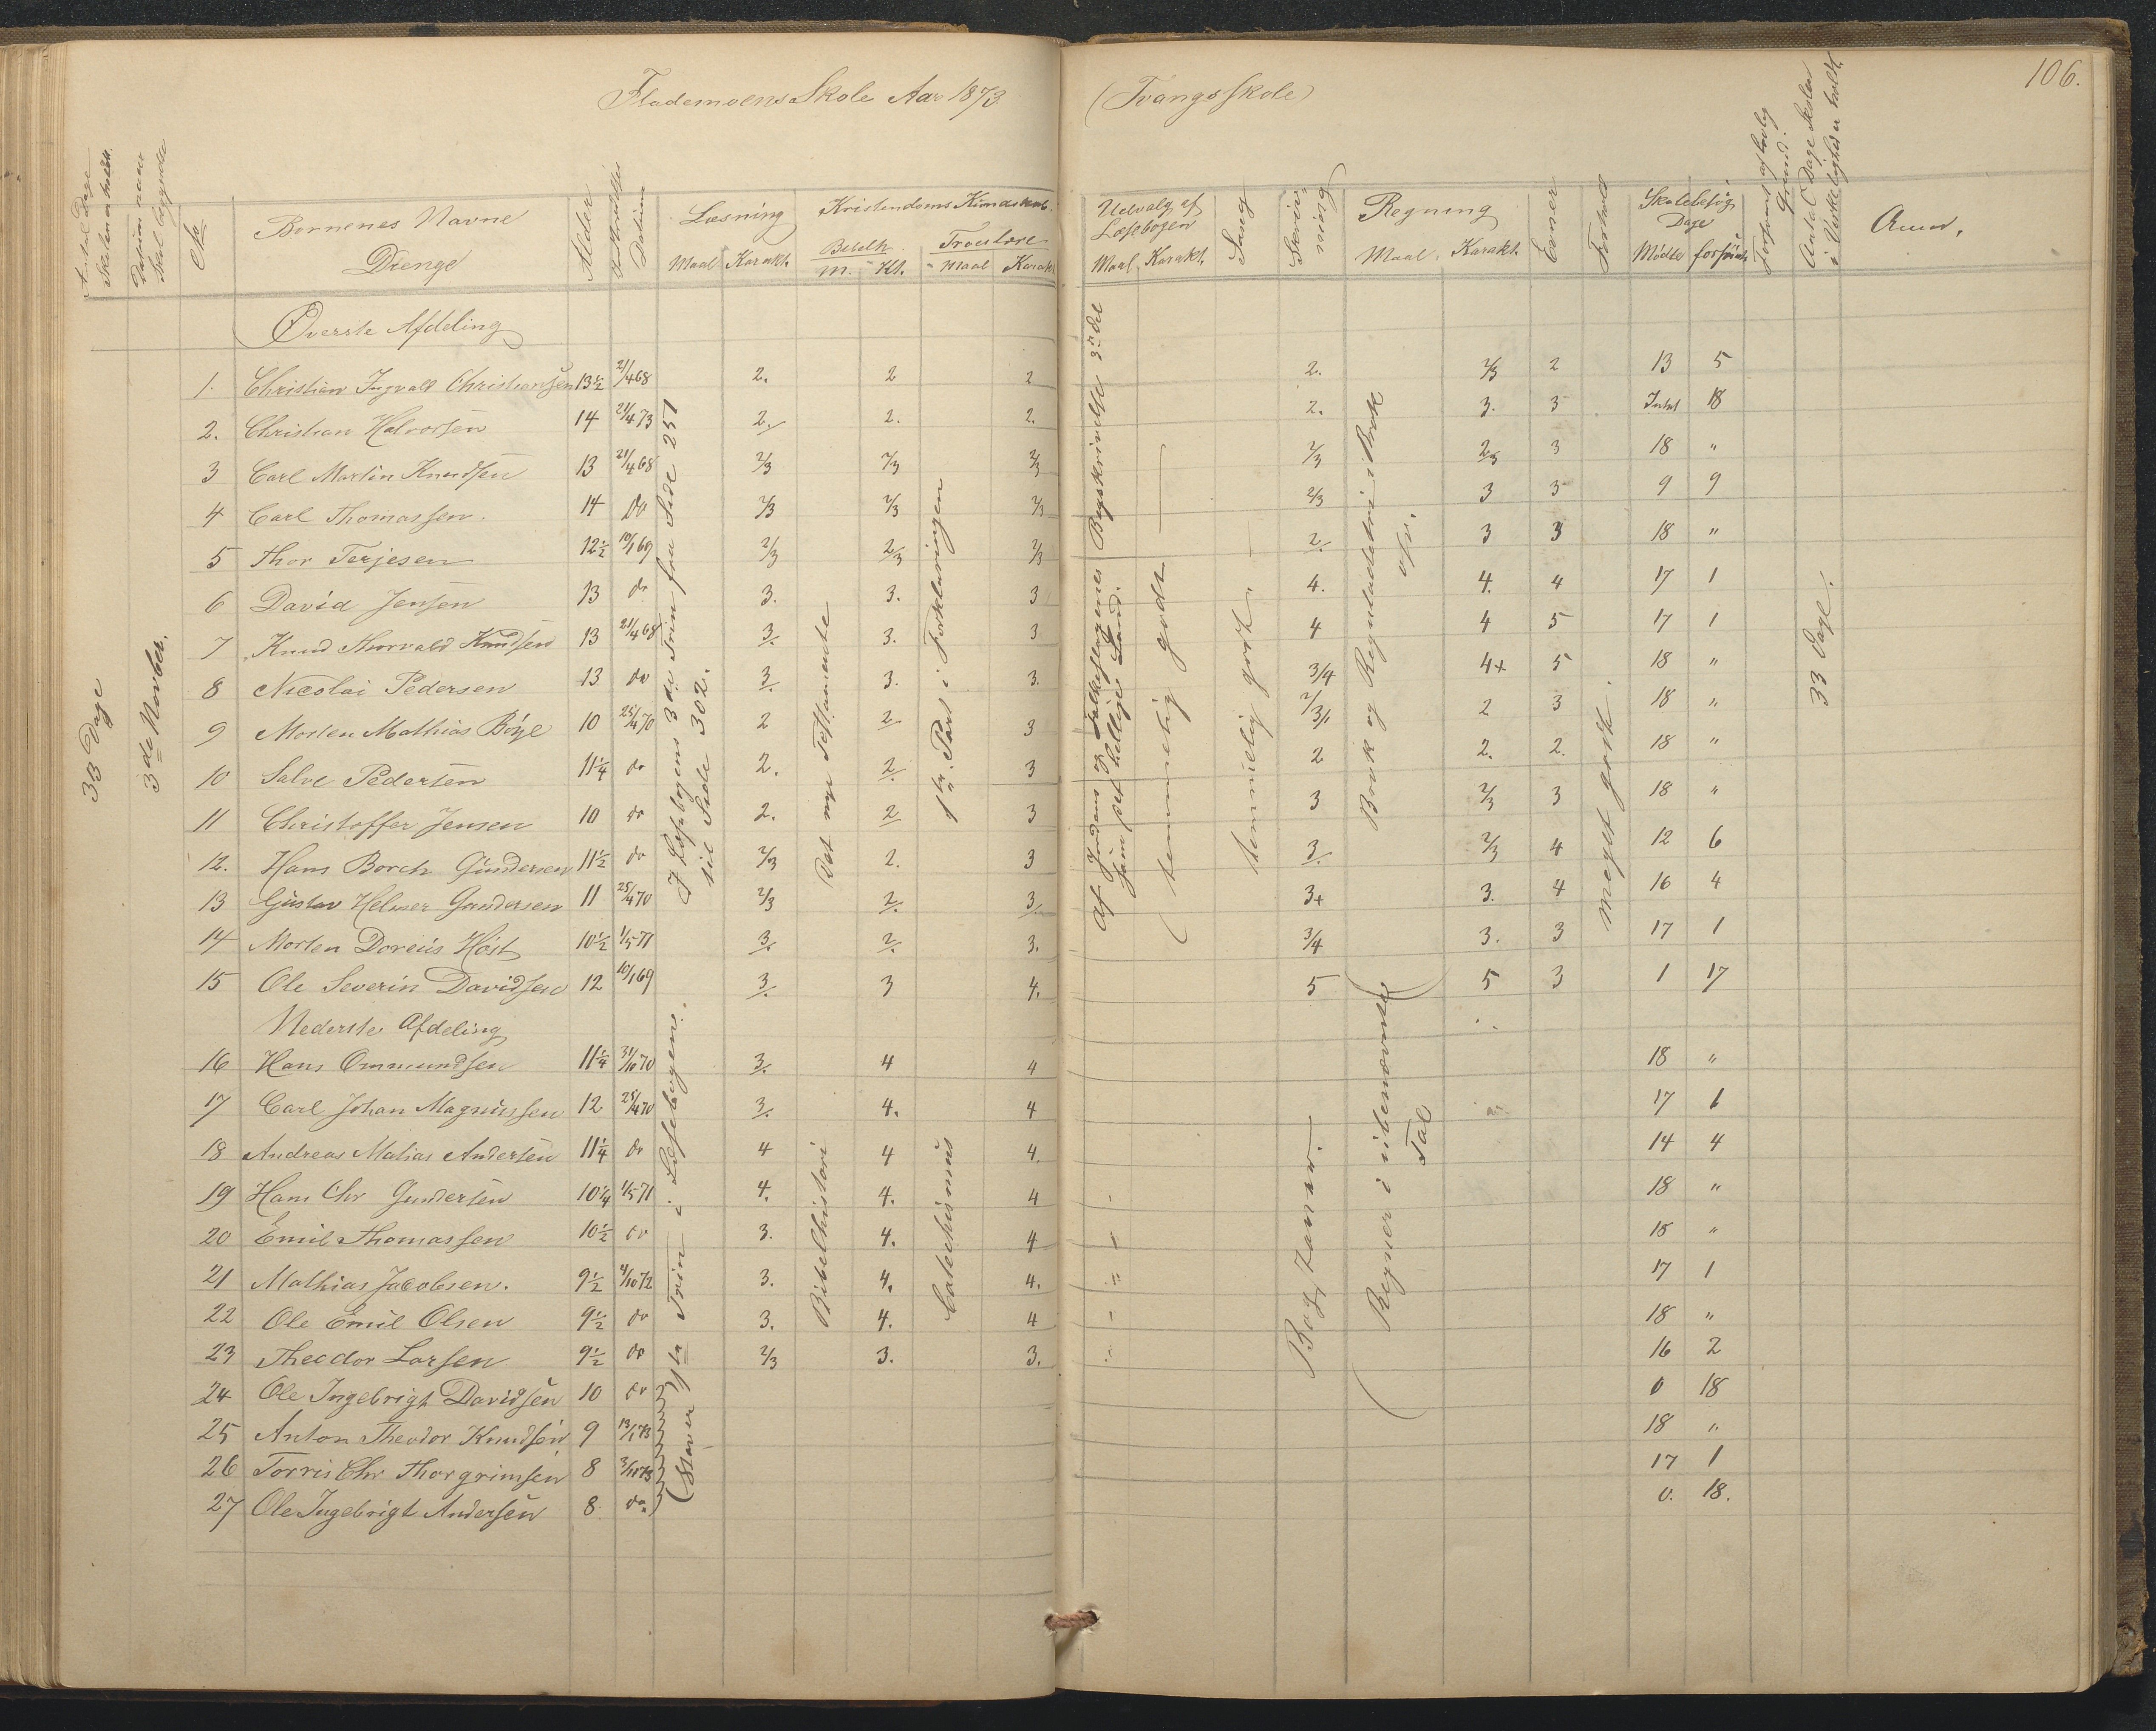 Flademoens Skole Aar 1873 (Tvangsskole) 106.
Antal Dage Skolen er holdt.
Datum naar Skol. begyndte
No
Børnenes Navne
Drenge
Alder
Datum
Læsning
Maal Karakt.
Kristendoms Kundskab.
Bibelh.
M. Kt.
Troeslære
Maal Karakt.
Udvalg af Læsebogen
Maal Karakt.
Sang
Skrivning
Regning
Maal Karakt.
Evner
Forhold
Skolebesøg
Dage
Mødte forsømte
Forsømt af lovlig Grund.
Antal Dage Skolen i Virkelighed er holdt.
Anm.
33 Dage
3de Novber.
Øverste Afdeling
1. Christian Ingvald Christiansen 13½ 21/4 68 2. 2 2 2. 2/3 2 13 5
2. Christian Halvorsen 14 21/4 73 2. 2. 2. 2. 3. 3 Intet 18
3 Carl Martin Knudsen 13 21/4 68 2/3 2/3 2/3 2/3 2/3 3 18 "
4 Carl Thomassen. 14 do 2/3 2/3 2/3 2/3 3 3 9 9
5 Thor Terjesen 12½ 10/1 69 2/3 2/3 2/3 2. 3 3 18 "
6 David Jensen 13 do 3. 3. 3 4. 4. 4 17 1
7 Knud Thorvald Knudsen 13 21/4 68 3. 3. 3 4 4 5 17 1
8 Nicolai Pedersen 13 do 3. 3. 3. 3/4 4+ 5 18 "
9 Morten Mathias Böye 10 25/4 70 2 2 3 2/3 2 3 18 "
10 Salve Pedersen 11¼ do 2. 2. 3 2 2. 2. 18 "
11 Christoffer Jensen 10 do 2. 2 3 3 2/3 3 18 "
12. Hans Borch Gundersen 11½ do 2/3 2. 3 3. 2/3 4 12 6
13 Gustav Helmer Gundersen 11 25/4 70 2/3 2. 3. 3+ 3. 4 16 4
14 Morten Doreus Høst 10½ 1/5 71 3. 2. 3. 3/4 3. 3 17 1
15 Ole Severin Davidsen 12 10/1 69 3. 3 4. 5 5 3 1 17
Nederste Afdeling
16 Hans Ommundsen 11¼ 31/10 70 3. 4 4 18 "
17 Carl Johan Magnussen 12 25/4 70 3. 4. 4 17 1
18 Andreas Matias Andersen 11¼ do 4 4 4. 14 4
19 Hans Chr Gundersen 10¼ 1/5 71 4. 4. 4 18 "
20 Emil Thomassen 10½ do 3. 4. 4 18 "
21 Mathias Jacobsen. 9½ 4/10 72 3. 4. 4. 17 1
22 Ole Emil Olsen 9½ do 3. 4. 4 18 "
23 Theodor Larsen 9½ do 2/3 3. 3. 16 2
24 Ole Ingebrigt Davidsen 10 do 0 18
25 Anton Theodor Knudsen 9 13/1 73 18 "
26 Torris Chr Thorgrimsen 8 3/11 73 17 1
27 Ole Ingebrigt Andersen 8. do. 0. 18.
I Læsebogens 3die Trin fra Side 251
til Side 302.
Det nye Testamente
1ste Part i Forklaringen
af Jordens og Folkeslagenes Beskrivelse 3die Del
som det hellige Land.
temmelig godt
temmelig godt
Brøk og Reguladetri i Brøk
osv.
meget godt.
33 Dage.
1ste Trin i Læsebogen.
(Staver
Bibelhistorie
Catechismus
Bogstaver.
Regner i ubenævnte
Tal